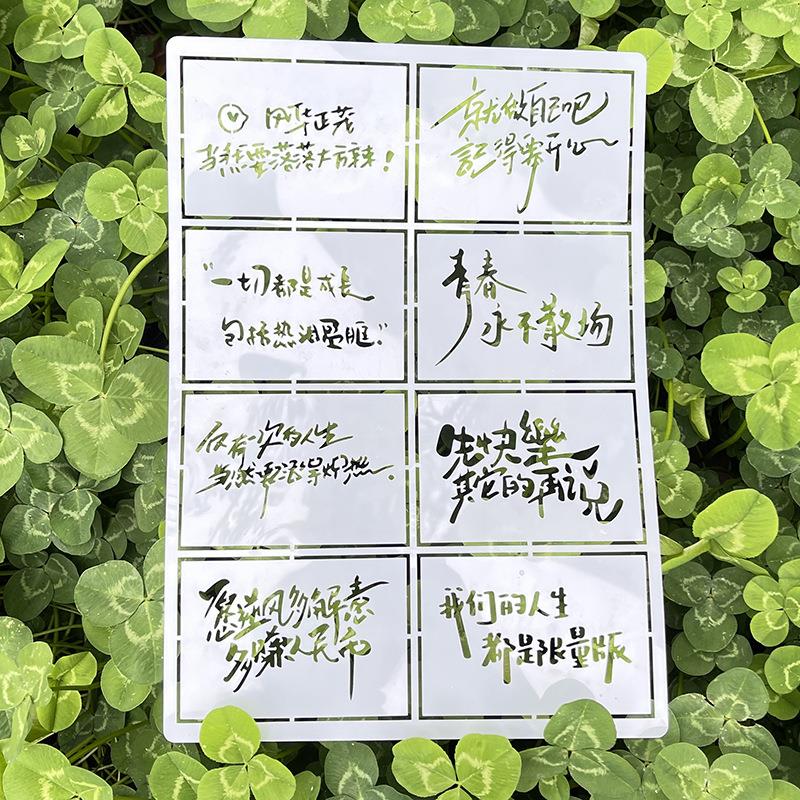 风华正茂
当然要落落大方辣！
就做自己吧
記得要开心
“一切都是成長
包括热泪盈眶”
青春
永不散场
仅有一次的人生
当然要活得炽热.
先快樂
其它的再说
愿逆风多解意
多赚人民币
我们的人生
都是限量版